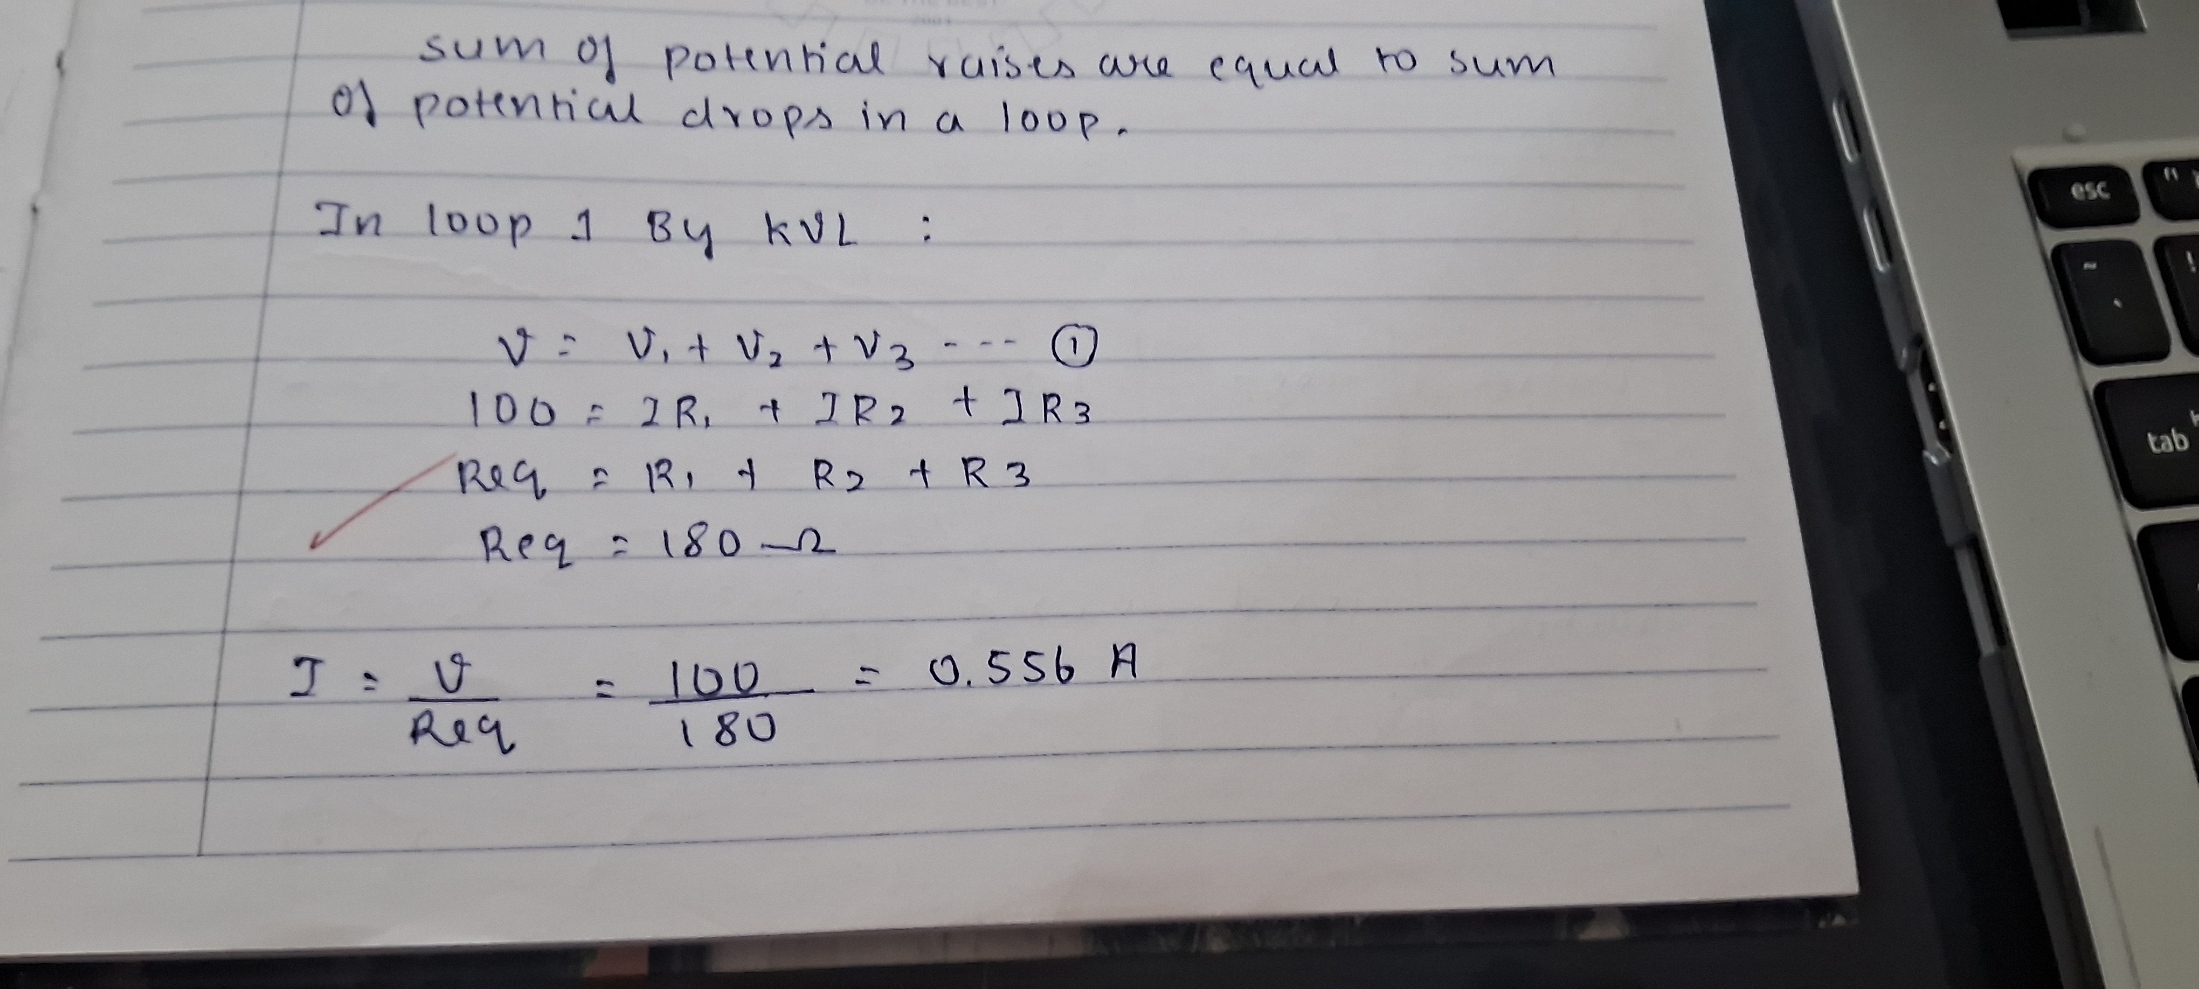 sum of potential raises are equal to sum
of potential drops in a loop.
In loop 1 By KVL :
V = V₁ + V₂ + V₃ --- ①
100 = IR₁ + IR₂ + IR₃
Req = R₁ + R₂ + R₃
Req = 180 Ω
I = V/Req = 100/180 = 0.556 A
esc
~
!
tab